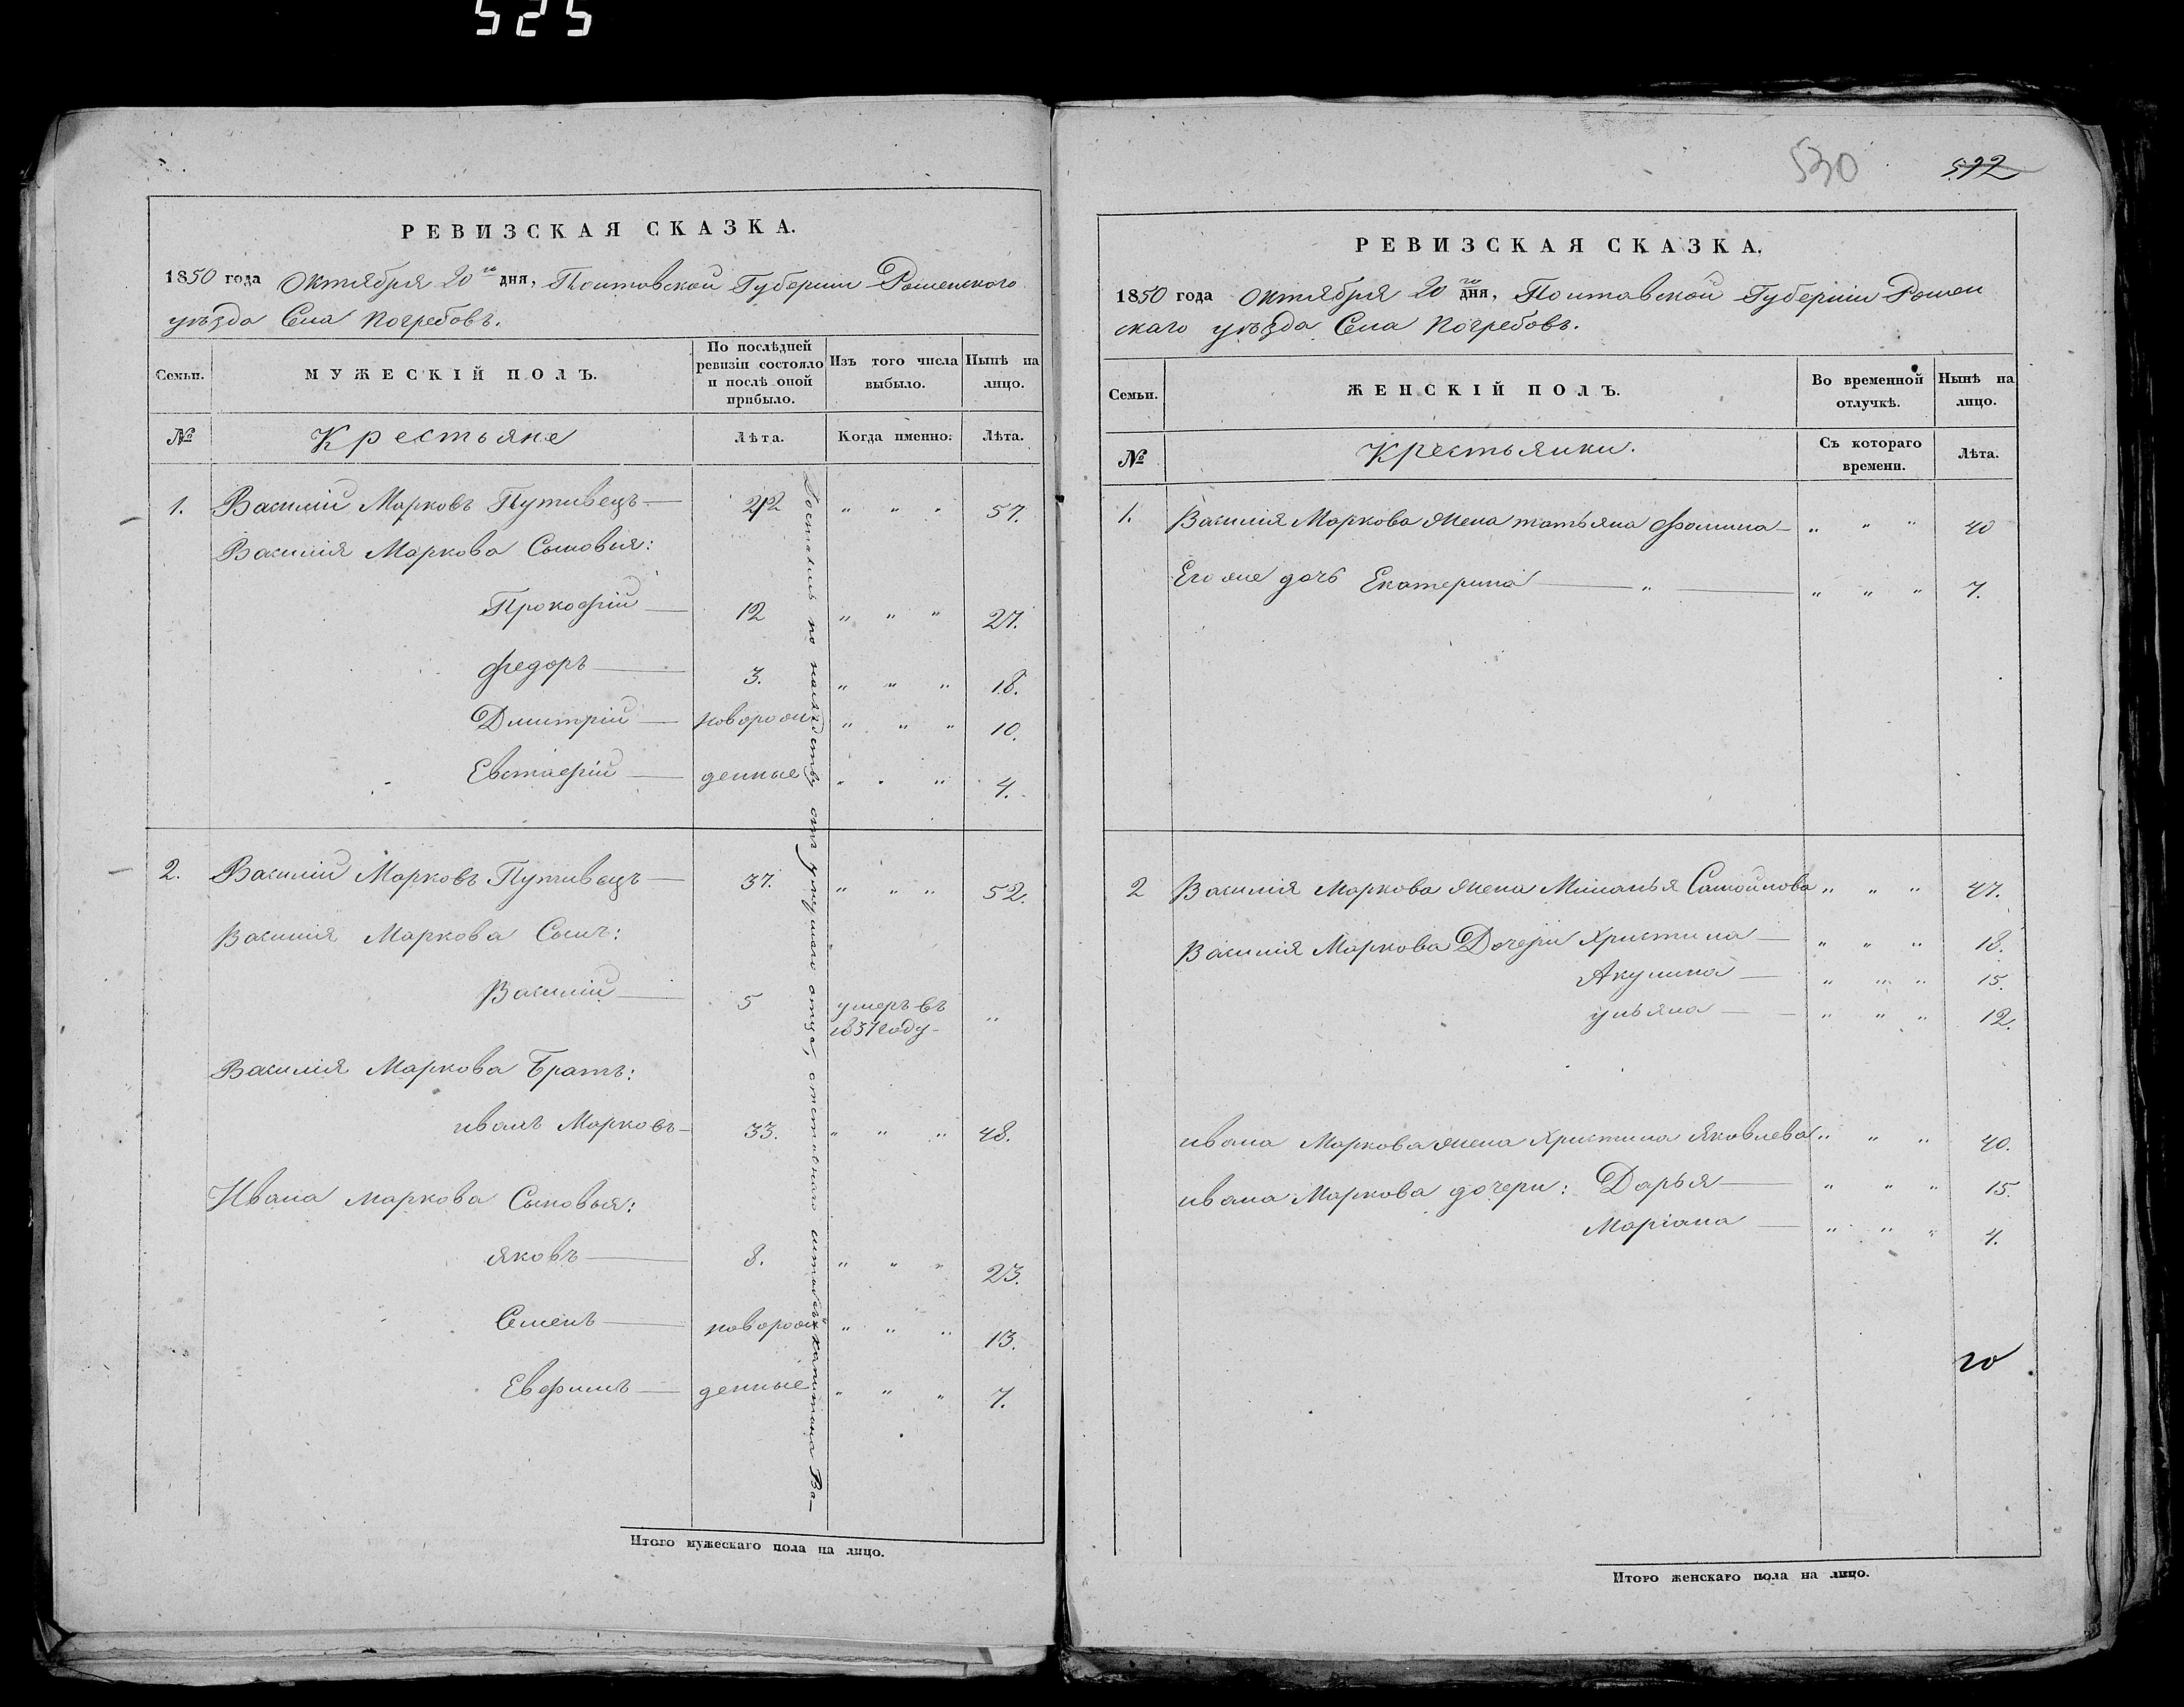 525
РЕВИЗСКАЯ СКАЗКА.
1850 года Октября 20го дня, Полтавской Губернии Роменского
уѣзда Села Погребовъ.
Семьи. МУЖЕСКІЙ ПОЛЪ. По послѣдней ревизіи состояло и послѣ оной прибыло. Изъ того числа выбыло. Нынѣ на лицо.
№ Крестьяне Лѣта. Когда именно. Лѣта.
1. Василій Марковъ Путивецъ — 42 " " " 57.
Василія Маркова Сыновья:
Прокофій — 12 " " " 27.
Федоръ — 3. " " " 18.
Дмитрій — новорож " " " 10.
Евстафій — денные " " " 4.
2. Василій Марковъ Путивецъ — 37. " " " 52.
Василія Маркова Сынъ:
Василій — 5 умеръ въ "
1837 году
Василія Маркова Братъ:
иванъ Марковъ — 33. " " " 48.
Ивана маркова Сыновья:
яковъ — 8. " " " 23.
Семенъ — новорож " " " 13.
Евфимъ — денные " " " 7.
Достались по наслѣдству отъ умершаго отца, отставного штабсъ капитана Ва-
Итого мужескаго пола на лицо.
530 592
РЕВИЗСКАЯ СКАЗКА.
1850 года Октября 20го дня, Полтавской Губерніи Ромен
скаго уѣзда Села Погребовъ.
Семьи. ЖЕНСКІЙ ПОЛЪ. Во временной отлучкѣ. Нынѣ на лицо.
№ Крестьянки. Съ котораго времени. Лѣта.
1. Василія Маркова жена татьяна Фомина — " " " 40
Его же дочь Екатерина — " — " " " 7.
2 Василія Маркова жена Миланья Самойлова " " " 47.
Василія Маркова Дочери Христина — " " " 18.
Акулина — " " " 15.
ульяна — " " " 12.
ивана Маркова жена Христина Яковлева " " " 40.
ивана Маркова дочери: Дарья — " " " 15.
Маріана — " " " 4.
Итого женскаго пола на лицо.